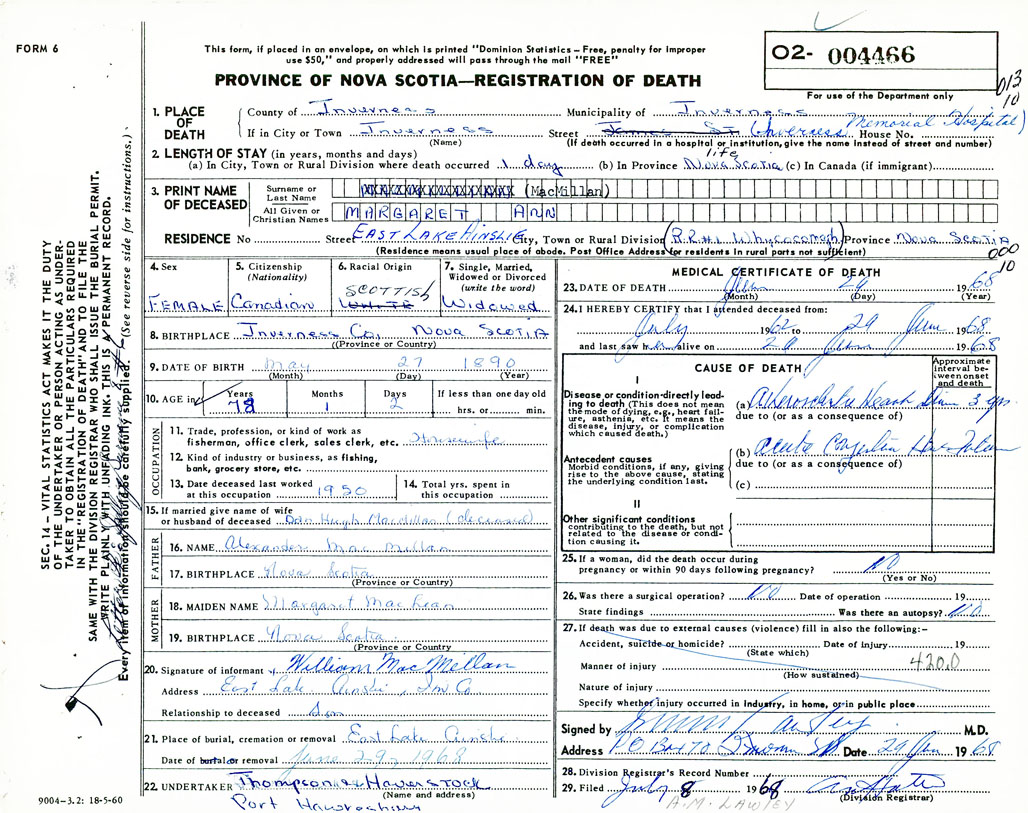 FORM 6
This form, if placed in an envelope, on which is printed "Dominion Statistics – Free, penalty for improper
use $50," and properly addressed will pass through the mail "FREE"
PROVINCE OF NOVA SCOTIA—REGISTRATION OF DEATH
02- 004466
For use of the Department only
013
10
1. PLACE OF DEATH
County of Inverness Municipality of Inverness
If in City or Town Inverness Street Inverness Memorial Hospital House No.
(Name) (If death occurred in a hospital or institution, give the name instead of street and number)
2. LENGTH OF STAY (in years, months and days)
(a) In City, Town or Rural Division where death occurred 1 day (b) In Province life Nova Scotia (c) In Canada (if immigrant)
3. PRINT NAME OF DECEASED
Surname or Last Name (MacMillan)
All Given or Christian Names MARGARET ANN
RESIDENCE No Street EAST LAKE AINSLIE City, Town or Rural Division (R.R.#1 Whycocomagh) Province NOVA SCOTIA
(Residence means usual place of abode. Post Office Address for residents in rural parts not sufficient)
000
10
4. Sex FEMALE
5. Citizenship (Nationality) Canadian
6. Racial Origin SCOTTISH WHITE
7. Single, Married, Widowed or Divorced (write the word) Widowed
8. BIRTHPLACE Inverness Co, NOVA SCOTIA
((Province or Country)
9. DATE OF BIRTH May 27 1890
(Month) (Day) (Year)
10. AGE in Years 78 Months 1 Days 2 If less than one day old hrs. or min.
OCCUPATION
11. Trade, profession, or kind of work as
fisherman, office clerk, sales clerk, etc. Housewife
12. Kind of industry or business, as fishing,
bank, grocery store, etc.
13. Date deceased last worked at this occupation 1950
14. Total yrs. spent in this occupation
15. If married give name of wife
or husband of deceased Dan Hugh MacMillan (deceased)
FATHER
16. NAME Alexander MacMillan
17. BIRTHPLACE Nova Scotia
(Province or Country)
MOTHER
18. MAIDEN NAME Margaret MacLean
19. BIRTHPLACE Nova Scotia
(Province or Country)
20. Signature of informant William MacMillan
Address East Lake Ainslie, Inv Co
Relationship to deceased Son
21. Place of burial, cremation or removal East Lake Ainslie
Date of burial or removal June 29, 1968
22. UNDERTAKER Thompson & Haverstock
(Name and address)
Port Hawkesbury
9004–3.2: 18-5-60
MEDICAL CERTIFICATE OF DEATH
23. DATE OF DEATH June 29 1968
(Month) (Day) (Year)
24. I HEREBY CERTIFY that I attended deceased from:
July 1962 to 29 June 1968
and last saw her alive on 29 June 1968
CAUSE OF DEATH
Approximate interval between onset and death
I
Disease or condition directly leading to death (This does not mean the mode of dying, e.g., heart failure, asthenia, etc. It means the disease, injury, or complication which caused death.)
(a) Atherosclerotic Heart 3 yrs
due to (or as a consequence of)
Antecedent causes
Morbid conditions, if any, giving rise to the above cause, stating the underlying condition last.
(b) acute Congestive Heart Failure
due to (or as a consequence of)
(c)
II
Other significant conditions
contributing to the death, but not related to the disease or condition causing it.
25. If a woman, did the death occur during
pregnancy or within 90 days following pregnancy? NO
(Yes or No)
26. Was there a surgical operation? NO Date of operation 19
State findings Was there an autopsy? NO
27. If death was due to external causes (violence) fill in also the following:–
Accident, suicide or homicide? Date of injury 19
(State which)
Manner of injury 420.0
(How sustained)
Nature of injury
Specify whether injury occurred in Industry, in home, or in public place
Signed by M.D.
Address P O Box 70 Date 29 June 1968
28. Division Registrar's Record Number
29. Filed July 8 1968
(Division Registrar)
A.M. LAWLEY
SEC. 14 – VITAL STATISTICS ACT MAKES IT THE DUTY
OF THE UNDERTAKER OR PERSON ACTING AS UNDER-
TAKER TO OBTAIN ALL THE PARTICULARS REQUIRED
IN THE "REGISTRATION OF DEATH" AND TO FILE THE
SAME WITH THE DIVISION REGISTRAR WHO SHALL ISSUE THE BURIAL PERMIT.
WRITE PLAINLY WITH UNFADING INK. THIS IS A PERMANENT RECORD.
Every item of information should be carefully supplied. (See reverse side for instructions.)